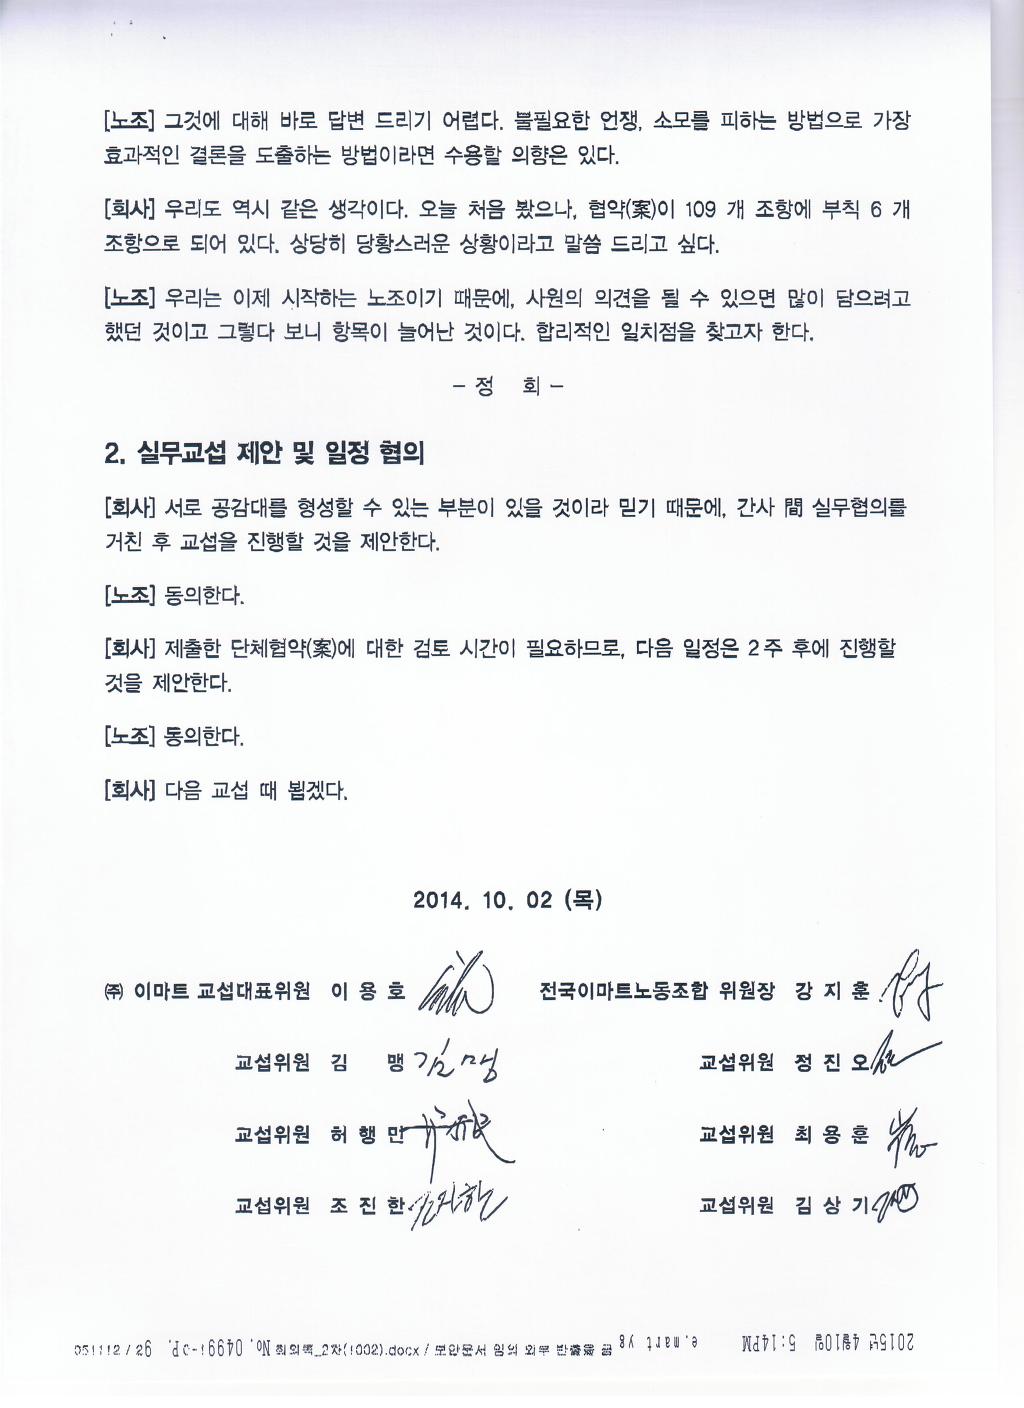 [노조] 그것에 대해 바로 답변 드리기 어렵다. 불필요한 언쟁, 소모를 피하는 방법으로 가장
효과적인 결론을 도출하는 방법이라면 수용할 의향은 있다.
[회사] 우리도 역시 같은 생각이다. 오늘 처음 봤으나, 협약(案)이 109 개 조항에 부칙 6 개
조항으로 되어 있다. 상당히 당황스러운 상황이라고 말씀 드리고 싶다.
[노조] 우리는 이제 시작하는 노조이기 때문에, 사원의 의견을 될 수 있으면 많이 담으려고
했던 것이고 그렇다 보니 항목이 늘어난 것이다. 합리적인 일치점을 찾고자 한다.
– 정 회 –
2. 실무교섭 제안 및 일정 협의
[회사] 서로 공감대를 형성할 수 있는 부분이 있을 것이라 믿기 때문에, 간사 間 실무협의를
거친 후 교섭을 진행할 것을 제안한다.
[노조] 동의한다.
[회사] 제출한 단체협약(案)에 대한 검토 시간이 필요하므로, 다음 일정은 2 주 후에 진행할
것을 제안한다.
[노조] 동의한다.
[회사] 다음 교섭 때 뵙겠다.
2014. 10. 02 (목)
㈜ 이마트 교섭대표위원 이 용 호 전국이마트노동조합 위원장 강 지 훈
교섭위원 김 맹 김맹 교섭위원 정 진 오
교섭위원 허 행 민 교섭위원 최 용 훈
교섭위원 조 진 한 조진한 교섭위원 김 상 기
회의록_2차(1002).docx / 보안문서 임의 외부 반출을 금
2015년 4월10일 5:14PM e.mart yg No. 0499-1 P. 26